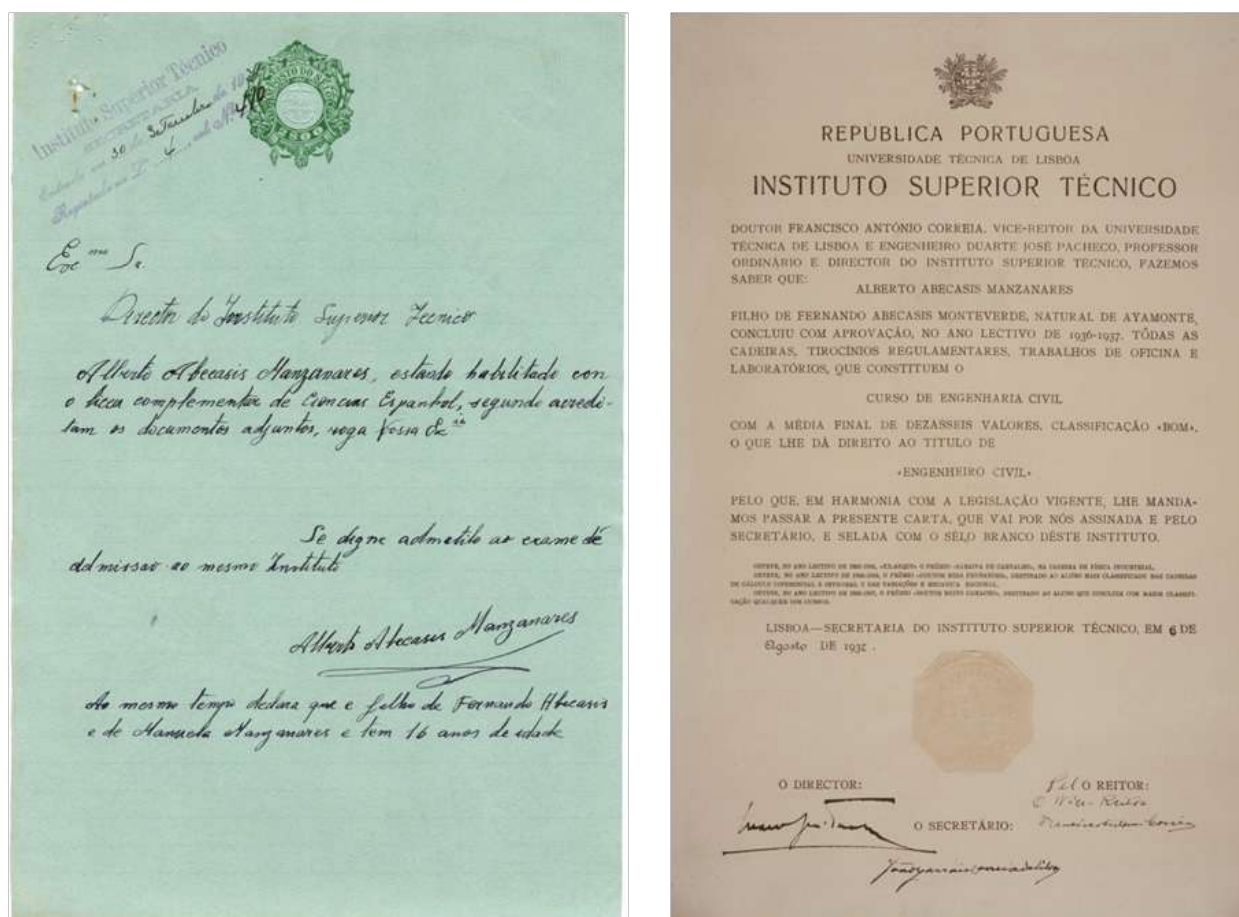 Instituto Superior Técnico
SECRETARIA
Entrado em 30 de Setembro de
Registado no Lº 4 sob Nº 410
Excmo Sr.
Director do Instituto Superior Tecnico
Alberto Abecasis Manzanares, estando habilitado con
o liceu complementar de Ciencias Espanhol, segundo acredi-
tam os documentos adjuntos, roga Vossa
Se digne admetilo ao exame de
admissao ao mesmo Instituto
Alberto Abecasis Manzanares
Ao mesmo tempo declara que e filho de Fernando Abecasis
e de Manuela Manzanares e tem 16 anos de idade
REPÚBLICA PORTUGUESA
UNIVERSIDADE TÉCNICA DE LISBOA
INSTITUTO SUPERIOR TÉCNICO
DOUTOR FRANCISCO ANTÓNIO CORREIA, VICE-REITOR DA UNIVERSIDADE
TÉCNICA DE LISBOA E ENGENHEIRO DUARTE JOSÉ PACHECO, PROFESSOR
ORDINÁRIO E DIRECTOR DO INSTITUTO SUPERIOR TÉCNICO, FAZEMOS
SABER QUE:
ALBERTO ABECASIS MANZANARES
FILHO DE FERNANDO ABECASIS MONTEVERDE, NATURAL DE AYAMONTE,
CONCLUIU COM APROVAÇÃO, NO ANO LECTIVO DE 1936-1937, TÔDAS AS
CADEIRAS, TIROCÍNIOS REGULAMENTARES, TRABALHOS DE OFICINA E
LABORATÓRIOS, QUE CONSTITUEM O
CURSO DE ENGENHARIA CIVIL
COM A MÉDIA FINAL DE DEZASSEIS VALORES, CLASSIFICAÇÃO «BOM»,
O QUE LHE DÁ DIREITO AO TITULO DE
«ENGENHEIRO CIVIL»
PELO QUE, EM HARMONIA COM A LEGISLAÇÃO VIGENTE, LHE MANDA-
MOS PASSAR A PRESENTE CARTA, QUE VAI POR NÓS ASSINADA E PELO
SECRETÁRIO, E SELADA COM O SÊLO BRANCO DÊSTE INSTITUTO.
LISBOA—SECRETARIA DO INSTITUTO SUPERIOR TÉCNICO, EM 6 DE
Agosto DE
O DIRECTOR:
Pel O REITOR:
O Vice-Reitor
O SECRETÁRIO: